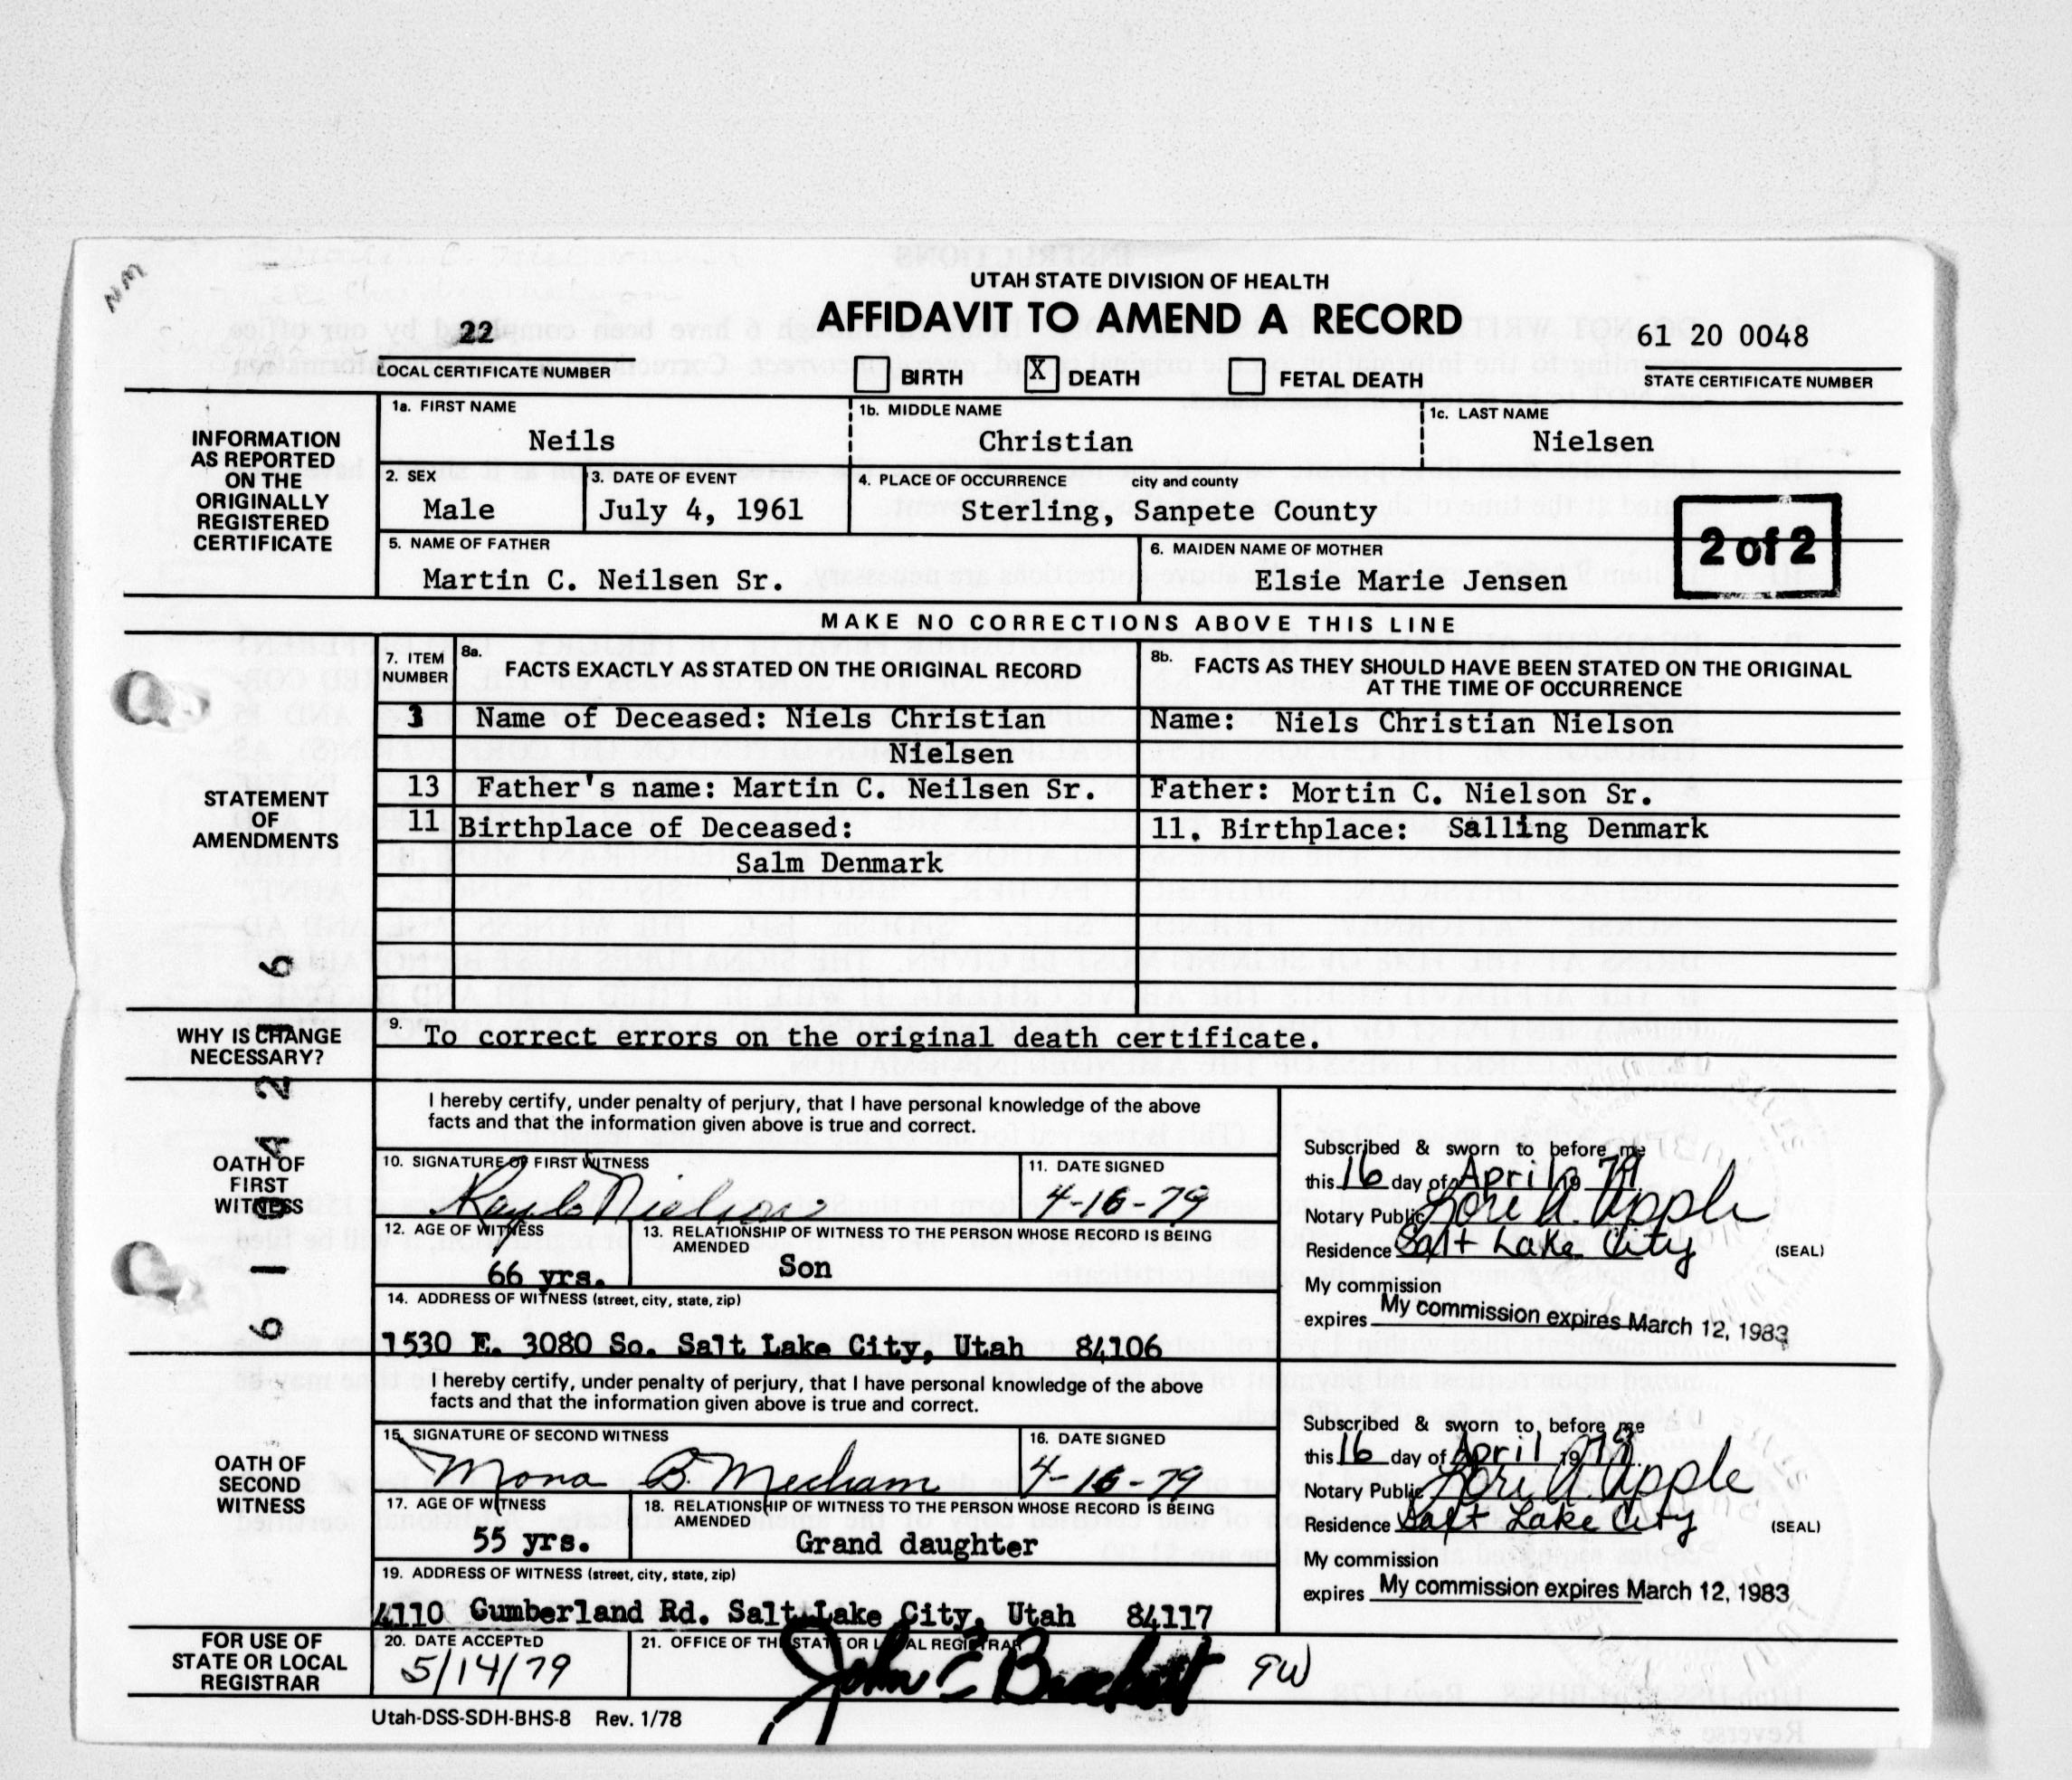 NM
UTAH STATE DIVISION OF HEALTH
AFFIDAVIT TO AMEND A RECORD
22
LOCAL CERTIFICATE NUMBER
BIRTH X DEATH FETAL DEATH
61 20 0048
STATE CERTIFICATE NUMBER
INFORMATION AS REPORTED ON THE ORIGINALLY REGISTERED CERTIFICATE
1a. FIRST NAME 1b. MIDDLE NAME 1c. LAST NAME
Neils Christian Nielsen
2. SEX 3. DATE OF EVENT 4. PLACE OF OCCURRENCE city and county
Male July 4, 1961 Sterling, Sanpete County
2 of 2
5. NAME OF FATHER 6. MAIDEN NAME OF MOTHER
Martin C. Neilsen Sr. Elsie Marie Jensen
MAKE NO CORRECTIONS ABOVE THIS LINE
STATEMENT OF AMENDMENTS
7. ITEM NUMBER
8a. FACTS EXACTLY AS STATED ON THE ORIGINAL RECORD
8b. FACTS AS THEY SHOULD HAVE BEEN STATED ON THE ORIGINAL AT THE TIME OF OCCURRENCE
3 Name of Deceased: Niels Christian Name: Niels Christian Nielson
Nielsen
13 Father's name: Martin C. Neilsen Sr. Father: Mortin C. Nielson Sr.
11 Birthplace of Deceased: 11. Birthplace: Salling Denmark
Salm Denmark
WHY IS CHANGE NECESSARY?
9. To correct errors on the original death certificate.
OATH OF FIRST WITNESS
I hereby certify, under penalty of perjury, that I have personal knowledge of the above
facts and that the information given above is true and correct.
10. SIGNATURE OF FIRST WITNESS 11. DATE SIGNED
Nielson 4-16-79
12. AGE OF WITNESS 13. RELATIONSHIP OF WITNESS TO THE PERSON WHOSE RECORD IS BEING AMENDED
66 yrs. Son
14. ADDRESS OF WITNESS (street, city, state, zip)
1530 E. 3080 So. Salt Lake City, Utah 84106
Subscribed & sworn to before me
this 16 day of April 19 79
Notary Public Lori A. Apple
Residence Salt Lake City (SEAL)
My commission
expires My commission expires March 12, 1983
OATH OF SECOND WITNESS
I hereby certify, under penalty of perjury, that I have personal knowledge of the above
facts and that the information given above is true and correct.
15. SIGNATURE OF SECOND WITNESS 16. DATE SIGNED
Mona B Mecham 4-16-79
17. AGE OF WITNESS 18. RELATIONSHIP OF WITNESS TO THE PERSON WHOSE RECORD IS BEING AMENDED
55 yrs. Grand daughter
19. ADDRESS OF WITNESS (street, city, state, zip)
4110 Cumberland Rd. Salt Lake City, Utah 84117
Subscribed & sworn to before me
this 16 day of April 19 79
Notary Public Lori A Apple
Residence Salt Lake City (SEAL)
My commission
expires My commission expires March 12, 1983
FOR USE OF STATE OR LOCAL REGISTRAR
20. DATE ACCEPTED 21. OFFICE OF THE STATE OR LOCAL REGISTRAR
5/14/79 John E Brockert
Utah-DSS-SDH-BHS-8 Rev. 1/78